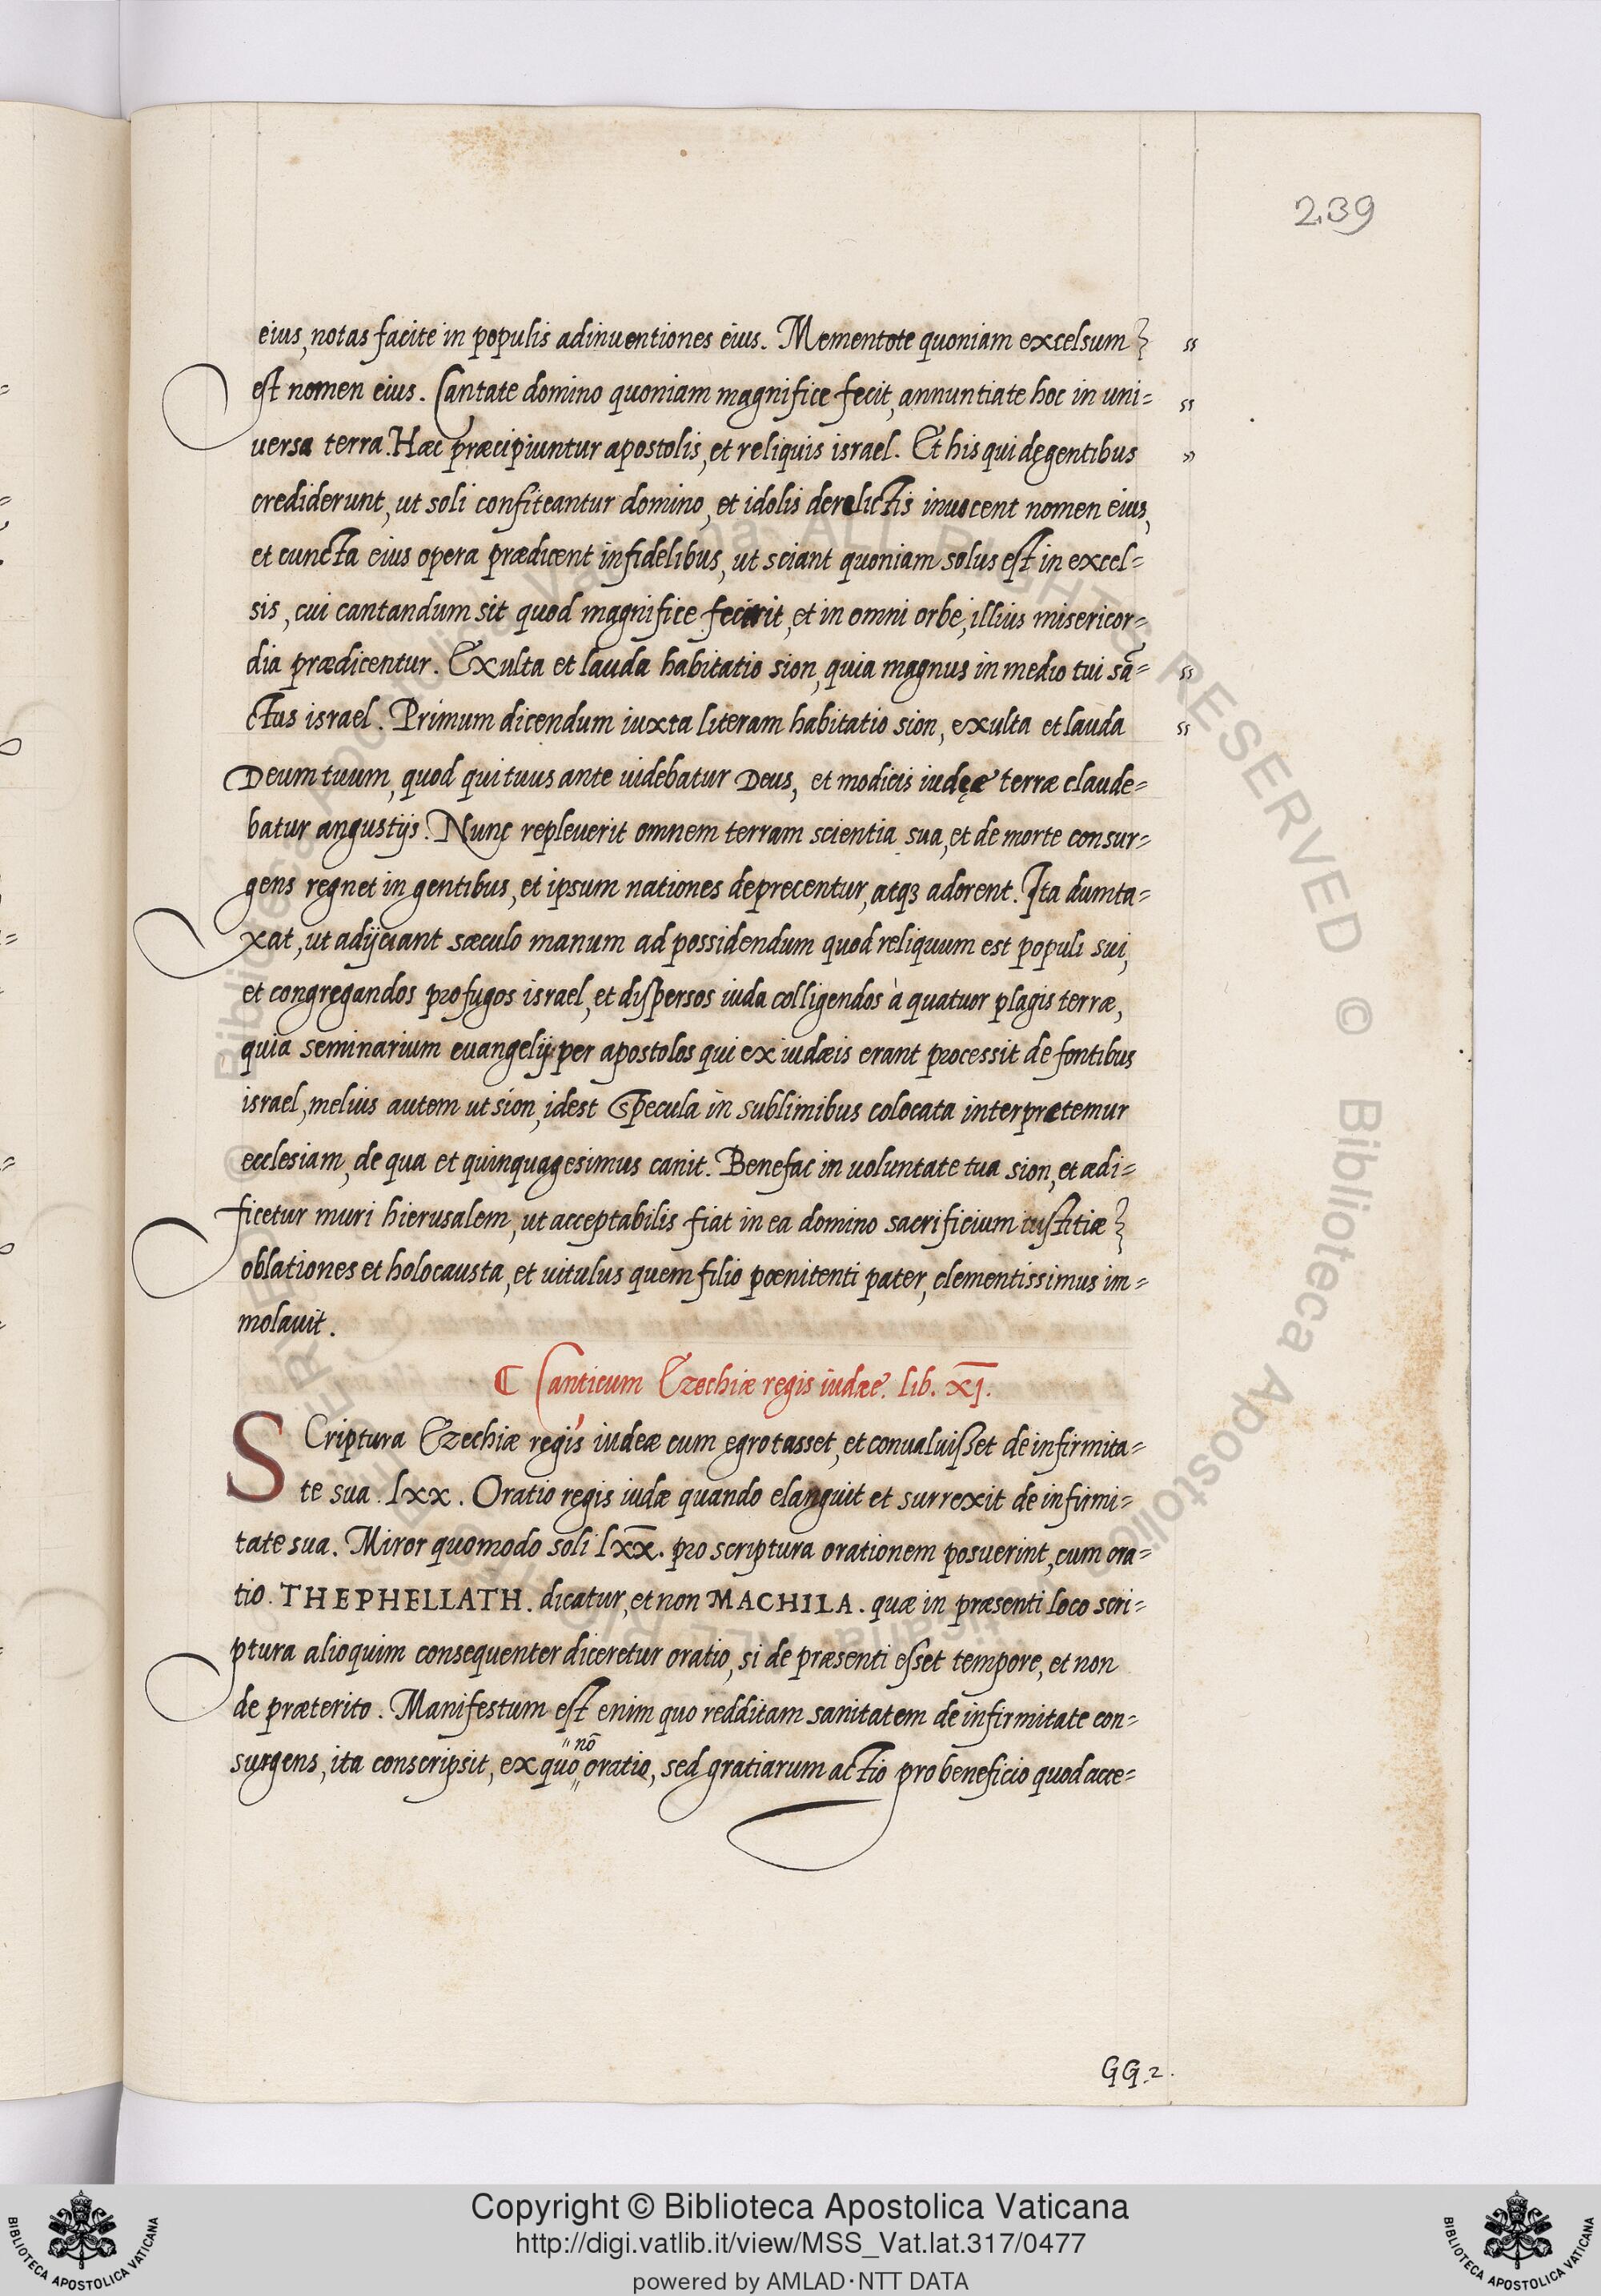 239
eius, notas facite in populis adinuentiones eius. Mementote quoniam excelsum
est nomen eius. Cantate domino quoniam magnifice fecit, annuntiate hoc in uni=
uersa terra. Hæc præcipiuntur apostolis, et reliquis israel. Et his qui de gentibus
crediderunt, ut soli confiteantur domino, et idolis derelictis inuocent nomen eius,
et cuncta eius opera prædicent infidelibus, ut sciant quoniam solus est in excel=
sis, cui cantandum sit quod magnifice fecerit, et in omni orbe, illius misericor=
dia prædicentur. Exulta et lauda habitatio sion, quia magnus in medio tui sã=
ctus israel. Primum dicendum iuxta literam habitatio sion, exulta et lauda
Deum tuum, quod qui tuus ante uidebatur Deus, et modicis iudęæ terræ claude=
batur angustijs. Nunc repleuerit omnem terram scientia sua, et de morte consur=
gens regnet in gentibus, et ipsum nationes deprecentur, atqꝫ adorent. Ita dumta=
xat, ut adijciant sæculo manum ad possidendum quod reliquum est populi sui,
et congregandos profugos israel, et dispersos iuda colligendos à quatuor plagis terræ,
quia seminarium euangelij per apostolos qui ex iudæis erant processit de fontibus
israel, melius autem ut sion, idest specula in sublimibus colocata interpretemur
ecclesiam, de qua et quinquagesimus canit. Benefac in uoluntate tua sion, et ædi=
ficetur muri hierusalem, ut acceptabilis fiat in ea domino sacrificium iustitiæ
oblationes et holocausta, et uitulus quem filio pœnitenti pater, clementissimus im=
molauit.
¶ Canticum Ezechiæ regis iudæe. lib. XI.
SCriptura Ezechiæ regis iudeæ cum egrotasset, et conualuisset de infirmita=
te sua. lxx. Oratio regis iudæ quando elanguit et surrexit de infirmi=
tate sua. Miror quomodo soli lxx. pro scriptura orationem posuerint, cum ora=
tio. THEPHELLATH. dicatur, et non MACHILA. quæ in præsenti loco scri=
ptura alioquim consequenter diceretur oratio, si de præsenti esset tempore, et non
de præterito. Manifestum est enim quo redditam sanitatem de infirmitate con=
surgens, ita conscripsit, ex quo nō oratio, sed gratiarum actio pro beneficio quod acce=
GG.2.
Copyright © Biblioteca Apostolica Vaticana
http://digi.vatlib.it/view/MSS_Vat.lat.317/0477
powered by AMLAD·NTT DATA
BIBLIOTECA APOSTOLICA VATICANA
BIBLIOTECA APOSTOLICA VATICANA